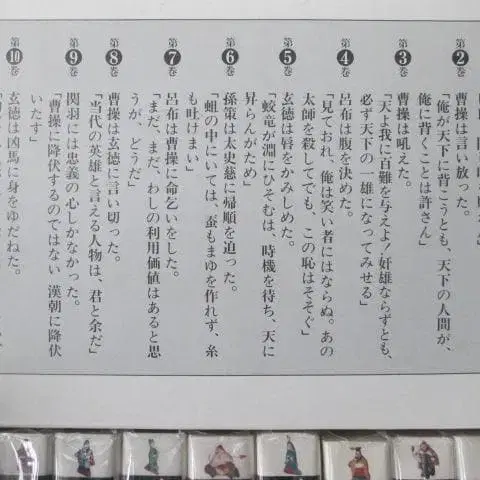 第❷巻
曹操は言い放った。
「俺が天下に背こうとも、天下の人間が、
俺に背くことは許さん」
第❸巻
曹操は吼えた。
「天よ我に百難を与えよ！奸雄ならずとも、
必ず天下の一雄になってみせる」
第❹巻
呂布は腹を決めた。
「見ておれ、俺は笑い者にはならぬ。あの
太師を殺してでも、この恥はそそぐ」
第❺巻
玄徳は唇をかみしめた。
「蛟竜が淵にひそむは、時機を待ち、天に
昇らんがため」
第❻巻
孫策は太史慈に帰順を迫った。
「蛆の中にいては、蚕もまゆを作れず、糸
も吐けまい」
第❼巻
呂布は曹操に命乞いをした。
「まだ、まだ、わしの利用価値はあると思
うが、どうだ」
第❽巻
曹操は玄徳に言い切った。
「当代の英雄と言える人物は、君と余だ」
第❾巻
関羽には忠義の心しかなかった。
「曹操に降伏するのではない 漢朝に降伏
いたす」
第❿巻
玄徳は凶馬に身をゆだねた。